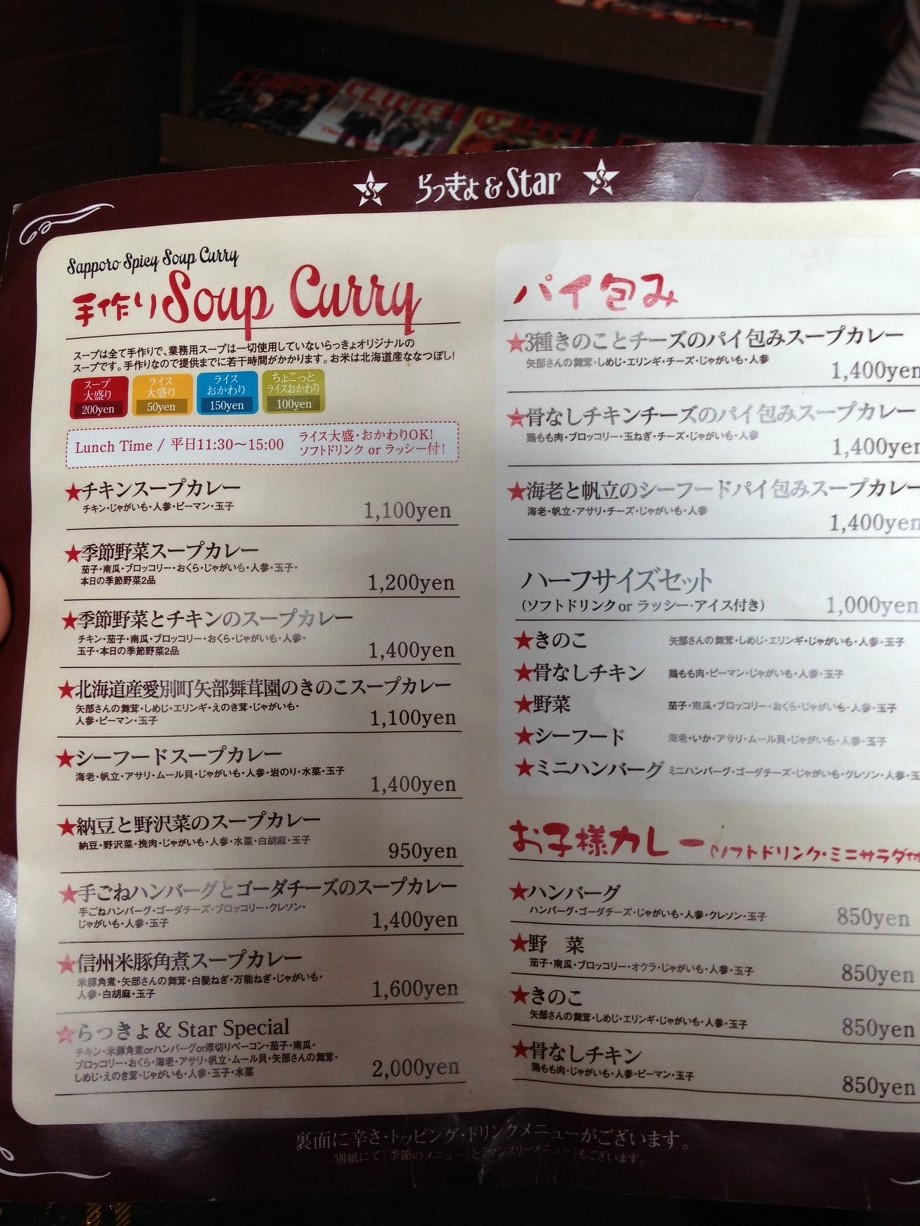 らっきょ & Star
Sapporo Spicy Soup Curry
手作り Soup Curry
スープは全て手作りで、業務用スープは一切使用していないらっきょオリジナルの
スープです。手作りなので提供までに若干時間がかかります。お米は北海道産ななつぼし!
スープ
大盛り
200yen
ライス
大盛り
50yen
ライス
おかわり
150yen
ちょこっと
ライスおかわり
100yen
Lunch Time / 平日11:30〜15:00
ライス大盛・おかわりOK!
ソフトドリンク or ラッシー付!
★チキンスープカレー
チキン・じゃがいも・人参・ピーマン・玉子
1,100yen
★季節野菜スープカレー
茄子・南瓜・ブロッコリー・おくら・じゃがいも・人参・玉子・
本日の季節野菜2品
1,200yen
★季節野菜とチキンのスープカレー
チキン・茄子・南瓜・ブロッコリー・おくら・じゃがいも・人参・
玉子・本日の季節野菜2品
1,400yen
★北海道産愛別町矢部舞茸園のきのこスープカレー
矢部さんの舞茸・しめじ・エリンギ・えのき茸・じゃがいも・
人参・ピーマン・玉子
1,100yen
★シーフードスープカレー
海老・帆立・アサリ・ムール貝・じゃがいも・人参・岩のり・水菜・玉子
1,400yen
★納豆と野沢菜のスープカレー
納豆・野沢菜・挽肉・じゃがいも・人参・水菜・白胡麻・玉子
950yen
★手ごねハンバーグとゴーダチーズのスープカレー
手ごねハンバーグ・ゴーダチーズ・ブロッコリー・クレソン・
じゃがいも・人参・玉子
1,400yen
★信州米豚角煮スープカレー
米豚角煮・矢部さんの舞茸・白髪ねぎ・万能ねぎ・じゃがいも・
人参・白胡麻・玉子
1,600yen
★らっきょ & Star Special
チキン・米豚角煮orハンバーグor厚切りベーコン・茄子・南瓜・
ブロッコリー・おくら・海老・アサリ・帆立・ムール貝・矢部さんの舞茸・
しめじ・えのき茸・じゃがいも・人参・玉子・水菜
2,000yen
パイ包み
★3種きのことチーズのパイ包みスープカレー
矢部さんの舞茸・しめじ・エリンギ・チーズ・じゃがいも・人参
1,400yen
★骨なしチキンチーズのパイ包みスープカレー
鶏もも肉・ブロッコリー・玉ねぎ・チーズ・じゃがいも・人参
1,400yen
★海老と帆立のシーフードパイ包みスープカレー
海老・帆立・アサリ・チーズ・じゃがいも・人参
1,400yen
ハーフサイズセット
(ソフトドリンク or ラッシー・アイス付き)
1,000yen
★きのこ 矢部さんの舞茸・しめじ・エリンギ・じゃがいも・人参・玉子
★骨なしチキン 鶏もも肉・ピーマン・じゃがいも・人参・玉子
★野菜 茄子・南瓜・ブロッコリー・おくら・じゃがいも・人参・玉子
★シーフード 海老・いか・アサリ・ムール貝・じゃがいも・人参・玉子
★ミニハンバーグ ミニハンバーグ・ゴーダチーズ・じゃがいも・クレソン・人参・玉
お子様カレー(ソフトドリンク・ミニサラダ付
★ハンバーグ
ハンバーグ・ゴーダチーズ・じゃがいも・人参・クレソン・玉子
850yen
★野 菜
茄子・南瓜・ブロッコリー・オクラ・じゃがいも・人参・玉子
850yen
★きのこ
矢部さんの舞茸・しめじ・エリンギ・じゃがいも・人参・玉子
850yen
★骨なしチキン
鶏もも肉・じゃがいも・人参・ピーマン・玉子
850yen
裏面に辛さ・トッピング・ドリンクメニューがございます。
別紙にて「季節のメニュー」と「マンスリーメニュー」もございます。